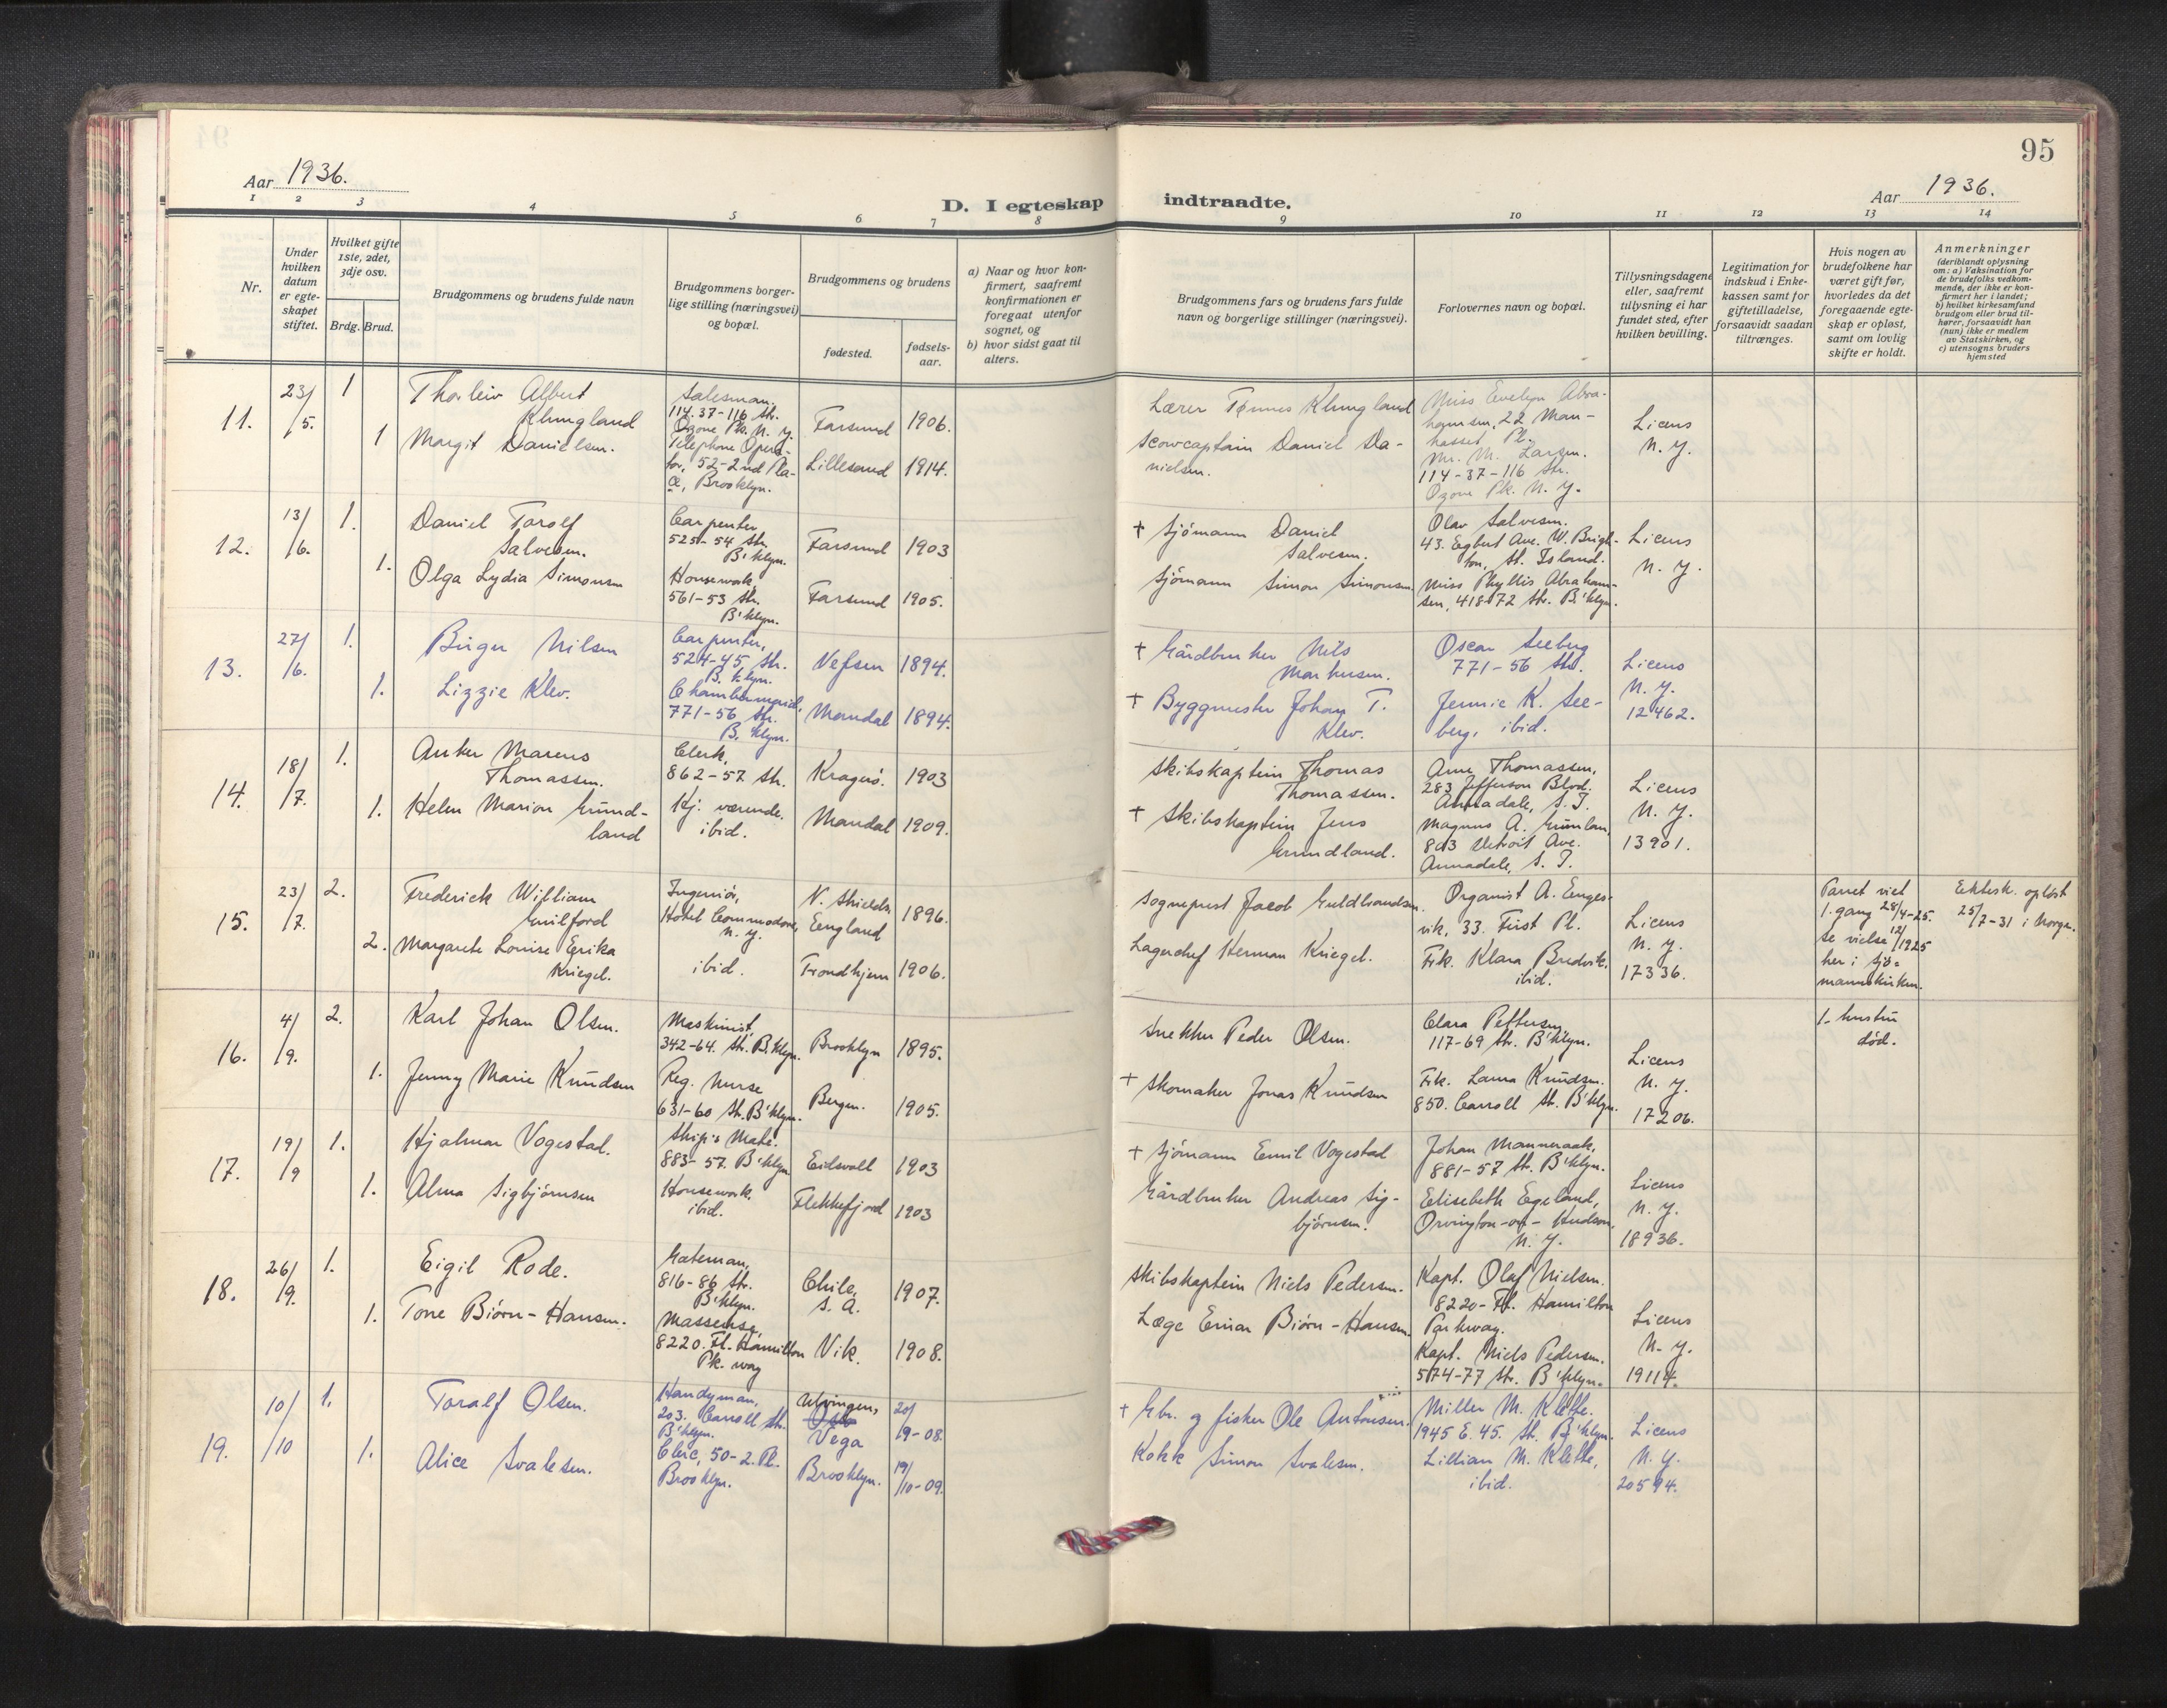 95
Aar 1936.
Aar 1936.
D. I egteskap indtraadte.
1 2 3 4 5 6 7 8 9 10 11 12 13 14
Nr.
Under hvilken datum er egteskapet stiftet.
Hvilket gifte 1ste, 2det, 3dje osv.
Brdg. Brud.
Brudgommens og brudens fulde navn
Brudgommens borgerlige stilling (næringsvei) og bopæl.
Brudgommens og brudens
fødested.
fødselsaar.
a) Naar og hvor konfirmert, saafremt konfirmationen er foregaat utenfor sognet, og
b) hvor sidst gaat til alters.
Brudgommens fars og brudens fars fulde navn og borgerlige stillinger (næringsvei).
Forlovernes navn og bopæl.
Tillysningsdagene eller, saafremt tillysning ei har fundet sted, efter hvilken bevilling.
Legitimation for indskud i Enkekassen samt for giftetilladelse, forsaavidt saadan tiltrænges.
Hvis nogen av brudefolkene har været gift før, hvorledes da det foregaaende egteskap er opløst, samt om lovlig skifte er holdt.
Anmerkninger (deriblandt oplysning om: a) Vaksination for de brudefolks vedkommende, der ikke er konfirmert her i landet; b) hvilket kirkesamfund brudgom eller brud tilhører, forsaavidt han (hun) ikke er medlem av Statskirken, og c) utensogns bruders hjemsted
11.
23/5.
1
1
Thorleiv Albert
Klungland
Margit Danielsen.
Salesman.
114.37-116 Str.
Ozone Pk. N. Y.
Telephone Opera-
tor, 52-2nd Pla-
ce, Brooklyn.
Farsund 1906.
Lillesand 1914.
Lærer Tønnes Klungland
Scowcaptain Daniel Da-
nielsen.
Miss Evelyn Abra-
hamsen, 22 Man-
hasset Pl.
Mr. M. Larsen.
114-37-116 Str.
Ozone Pk. N. Y.
Licens
N. Y.
12.
13/6.
1.
1.
Daniel Torolf
Salvesen.
Olga Lydia Simonsen
Carpenter
525-54 Str.
B'klyn.
Housework
561-53 Str.
B'klyn.
Farsund 1903
Farsund 1905.
† Sjömann Daniel
Salvesen.
Sjömann Simon Simonsen.
Olav Salvesen.
43. Egbert Ave. W. Brigh-
ton, St. Island.
Miss Phyllis Abraham-
sen, 418-72 Str. B'klyn.
Licens
N. Y.
13.
27/6.
1.
1.
Birger Nilsen
Lizzie Klev.
Carpenter,
524-45 Str.
B.klyn.
Chambermaid,
771-56 Str.
B.klyn.
Vefsen 1894.
Mandal 1894.
† Gårdbruker Nils
Markusen.
† Byggmester Johan T.
Klev.
Oscar Seeberg
771-56 Str.
Jennie K. See-
berg, ibid.
Licens
N. Y.
12462.
14.
18/7.
1.
1.
Anker Marens
Thomassen.
Helen Marion Grund-
land
Clerk,
862-57 Str.
Hj. værende.
ibid.
Kragerö. 1903
Mandal 1909.
Skibskaptein Thomas
Thomassen.
† Skibskaptein Jens
Grundland.
Anne Thomassen,
283 Jefferson Blvd.
Annadale, S. I.
Magnus A.
Detroit Ave.
Annadale, S. I.
Licens
N. Y.
13901.
15.
23/7.
2.
2.
Frederick William
Guilford
Margarete Louise Erika
Kriegel.
Ingeniör,
Hotel Commodore,
N. Y.
ibid.
N. Shields,
England 1896.
Trondhjem 1906.
Sogneprest Jacob Guldbrandsen.
Lagerchef Herman Kriegel.
Organist A. Enges-
vik, 33. First Pl.
Frk. Klara Bredvik,
ibid.
Licens
N. Y.
17336.
Parret viet
1. gang 28/4-25.
se vielse 12/1925
her i Sjö-
mannskirken.
Ektesk. opløst
25/7-31 i Norge.
16.
4/9.
2.
1.
Karl Johan Olsen.
Jenny Marie Knudsen
Maskinist,
342-64. Str. B.klyn.
Reg. Nurse
631-60 Str. B'klyn.
Brooklyn 1895.
Bergen. 1905.
Snekker Peder Olsen.
† Skomaker Jonas Knudsen
Clara Pettersen,
117-69 Str. B'klyn.
Frk. Laura Knudsen.
850. Carroll St. B'klyn.
Licens
N. Y.
17206.
1. hustru
död.
17.
19/9
1.
1.
Hjalmar Vogestad.
Alma Sigbjörnsen
Ship's Mate.
883-57. B'klyn
Housework.
ibid.
Eidsvoll 1903
Flekkefjord 1903
† Sjömann Emil Vogestad
Gårdbruker Andreas Sig-
björnsen.
Johan Manneraak,
881-57 Str. B'klyn.
Elisabeth Egeland,
Orvington-on-Hudson,
N. Y.
Licens
N. Y.
18936.
18.
26/9.
1.
1.
Eigil Rode.
Tone Biörn-Hansen.
Gateman,
816-86 Str.
B'klyn.
Masseuse,
8220. Ft. Hamilton
Pk. way
Chile,
S. A. 1907.
Vik. 1908.
Skibskaptein Niels Pedersen.
Læge Einar Biörn-Hansen.
Kapt. Olaf Nielsen.
8220-Ft. Hamilton
Parkway.
Kapt. Niels Pedersen.
574-77 Str. B'klyn.
Licens
N. Y.
19114.
19.
10/10
1.
1.
Toralf Olsen.
Alice Svalesen.
Handyman,
203. Carroll Str.
B'klyn.
Cleric, 50-2. Pl.
Brooklyn.
Ulvingen,
Vega
20/9-08.
Brooklyn.
19/10-09.
† Gbr. og fisker Ole Antonsen.
Kokk Simon Svalesen.
Miller M. Klette.
1945 E. 45. St. B'klyn.
Lillian M. Klette,
ibid.
Licens
N. Y.
20594.